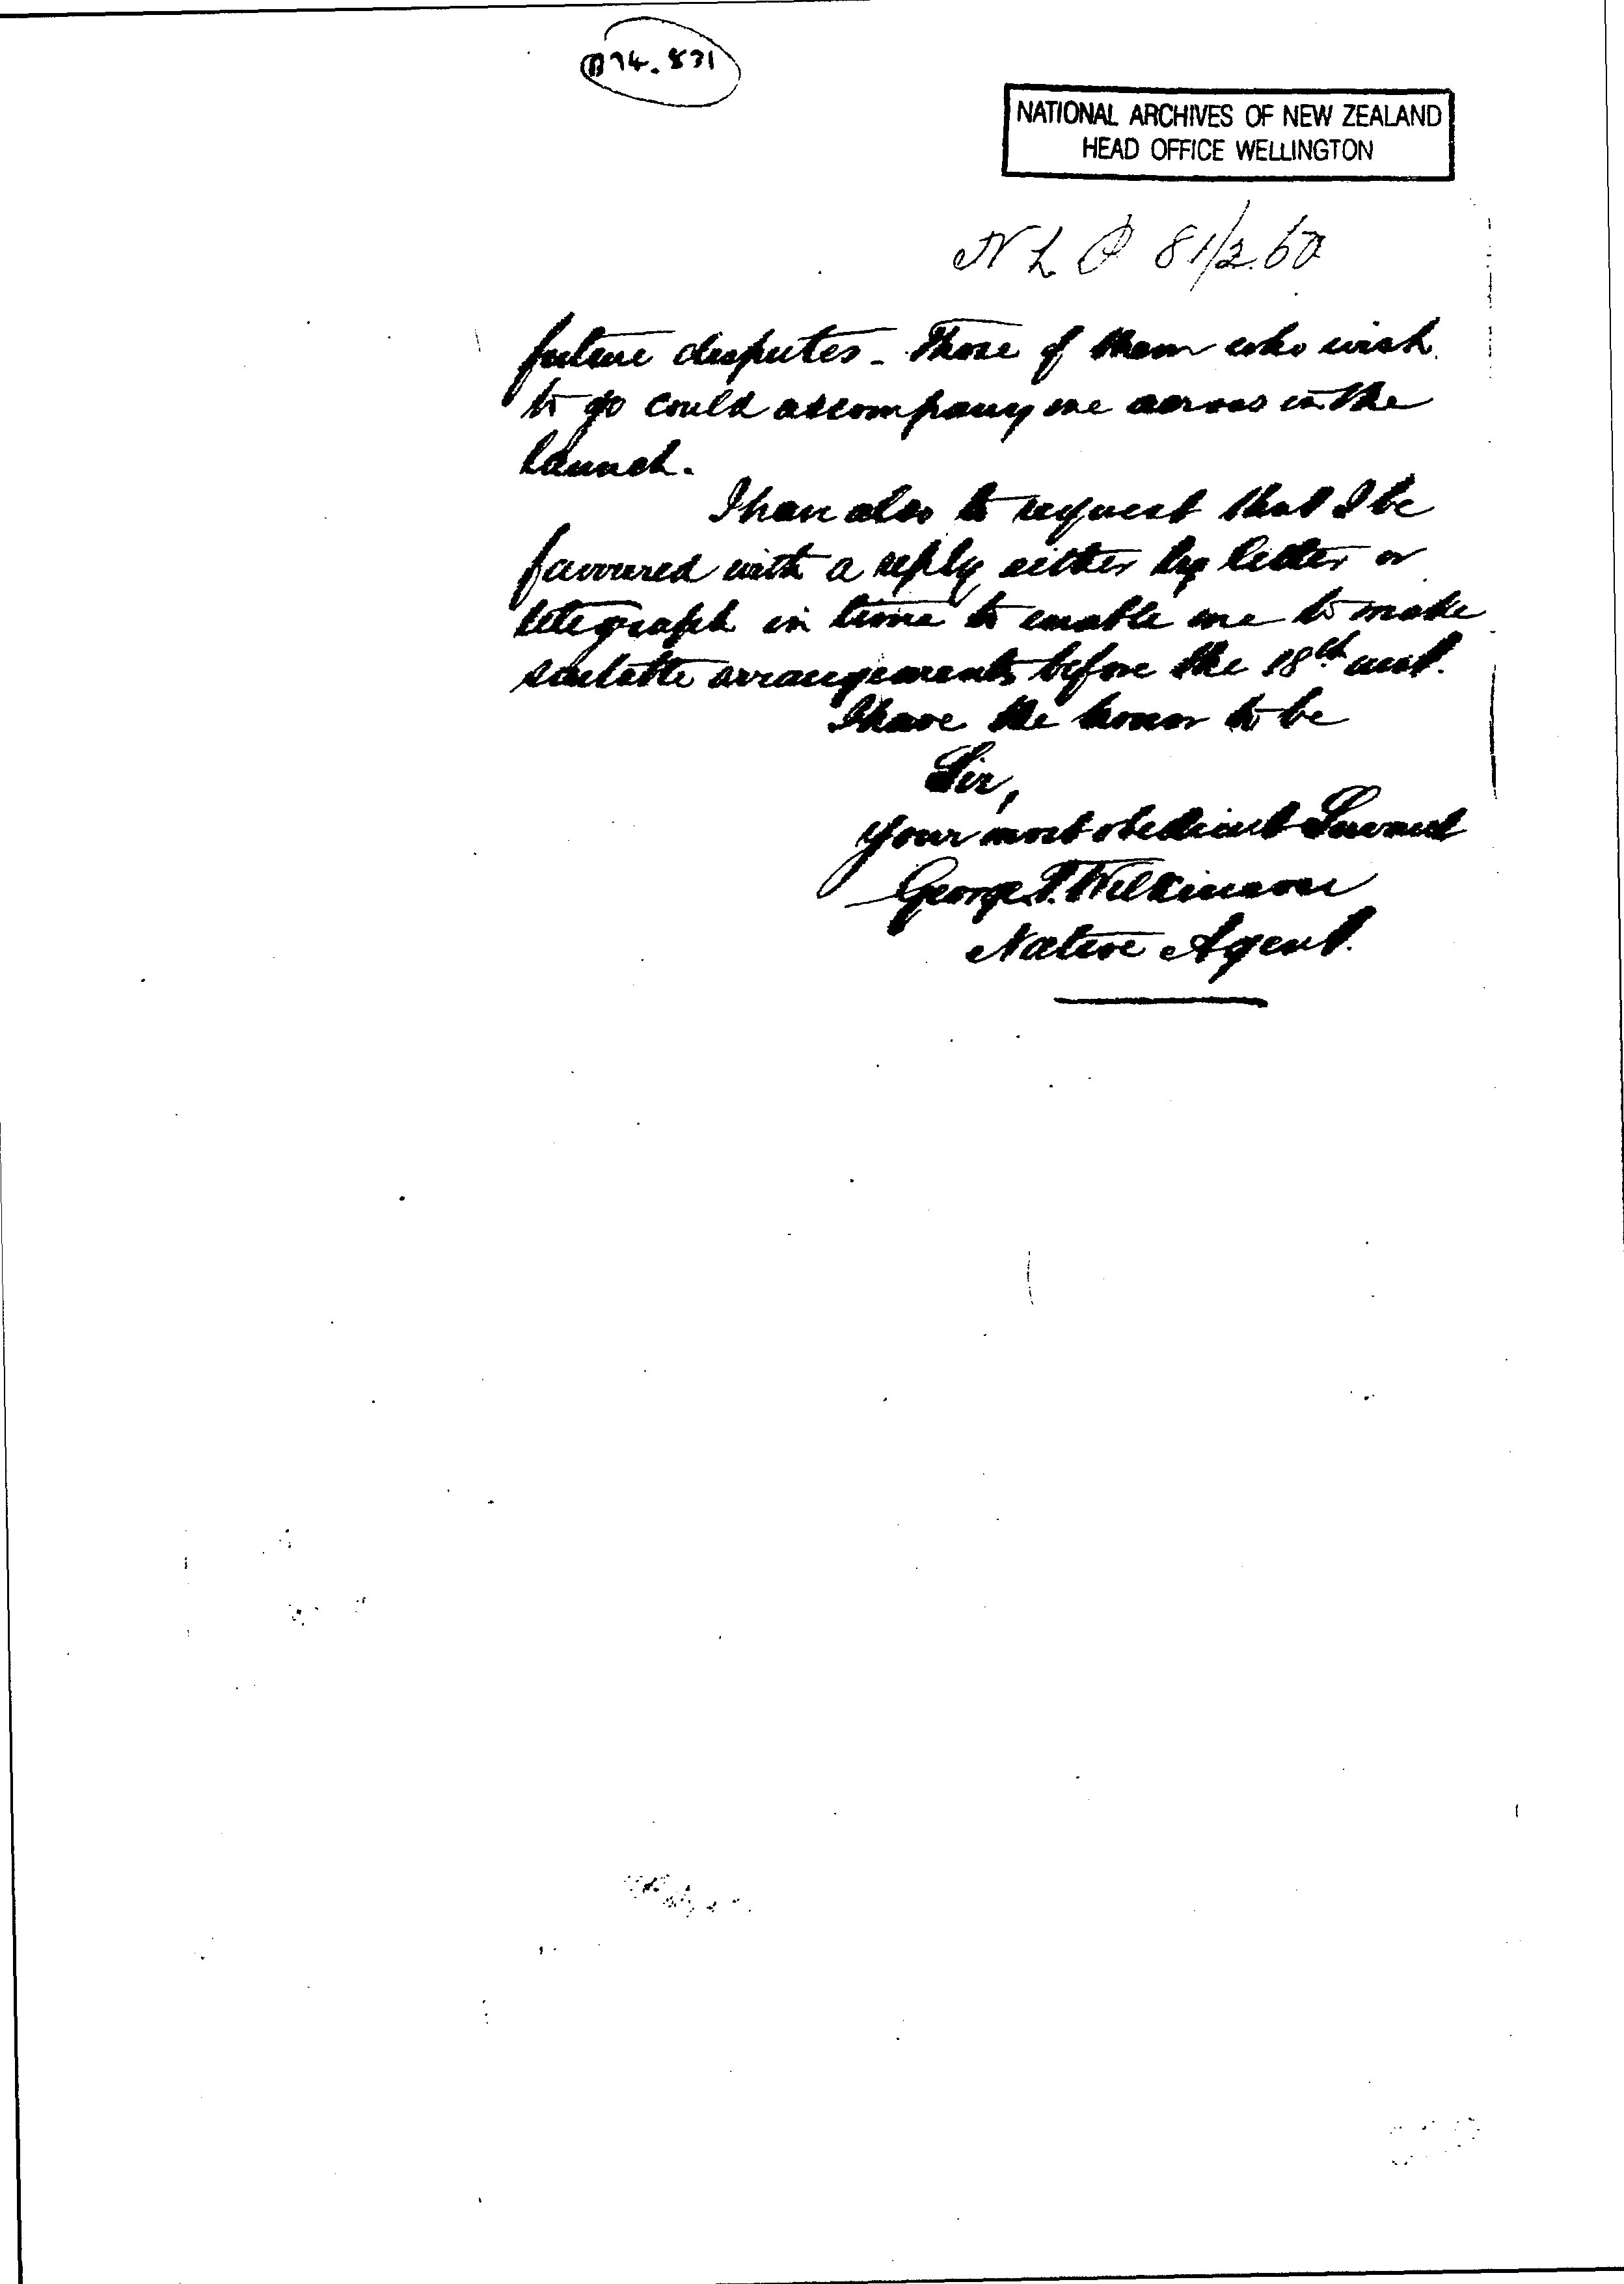 B74.831
NATIONAL ARCHIVES OF NEW ZEALAND
HEAD OFFICE WELLINGTON
N L P 81/260
future disputes - Those of them who wish
to go could accompany me across in the
launch.
I have also to request that I be
favoured with a reply either by letter or
telegraph in time to enable me to make
suitable arrangements before the 18th inst.
I have the honor to be
Sir,
Your most obedient Servant
George T. Wilkinson
Native Agent.